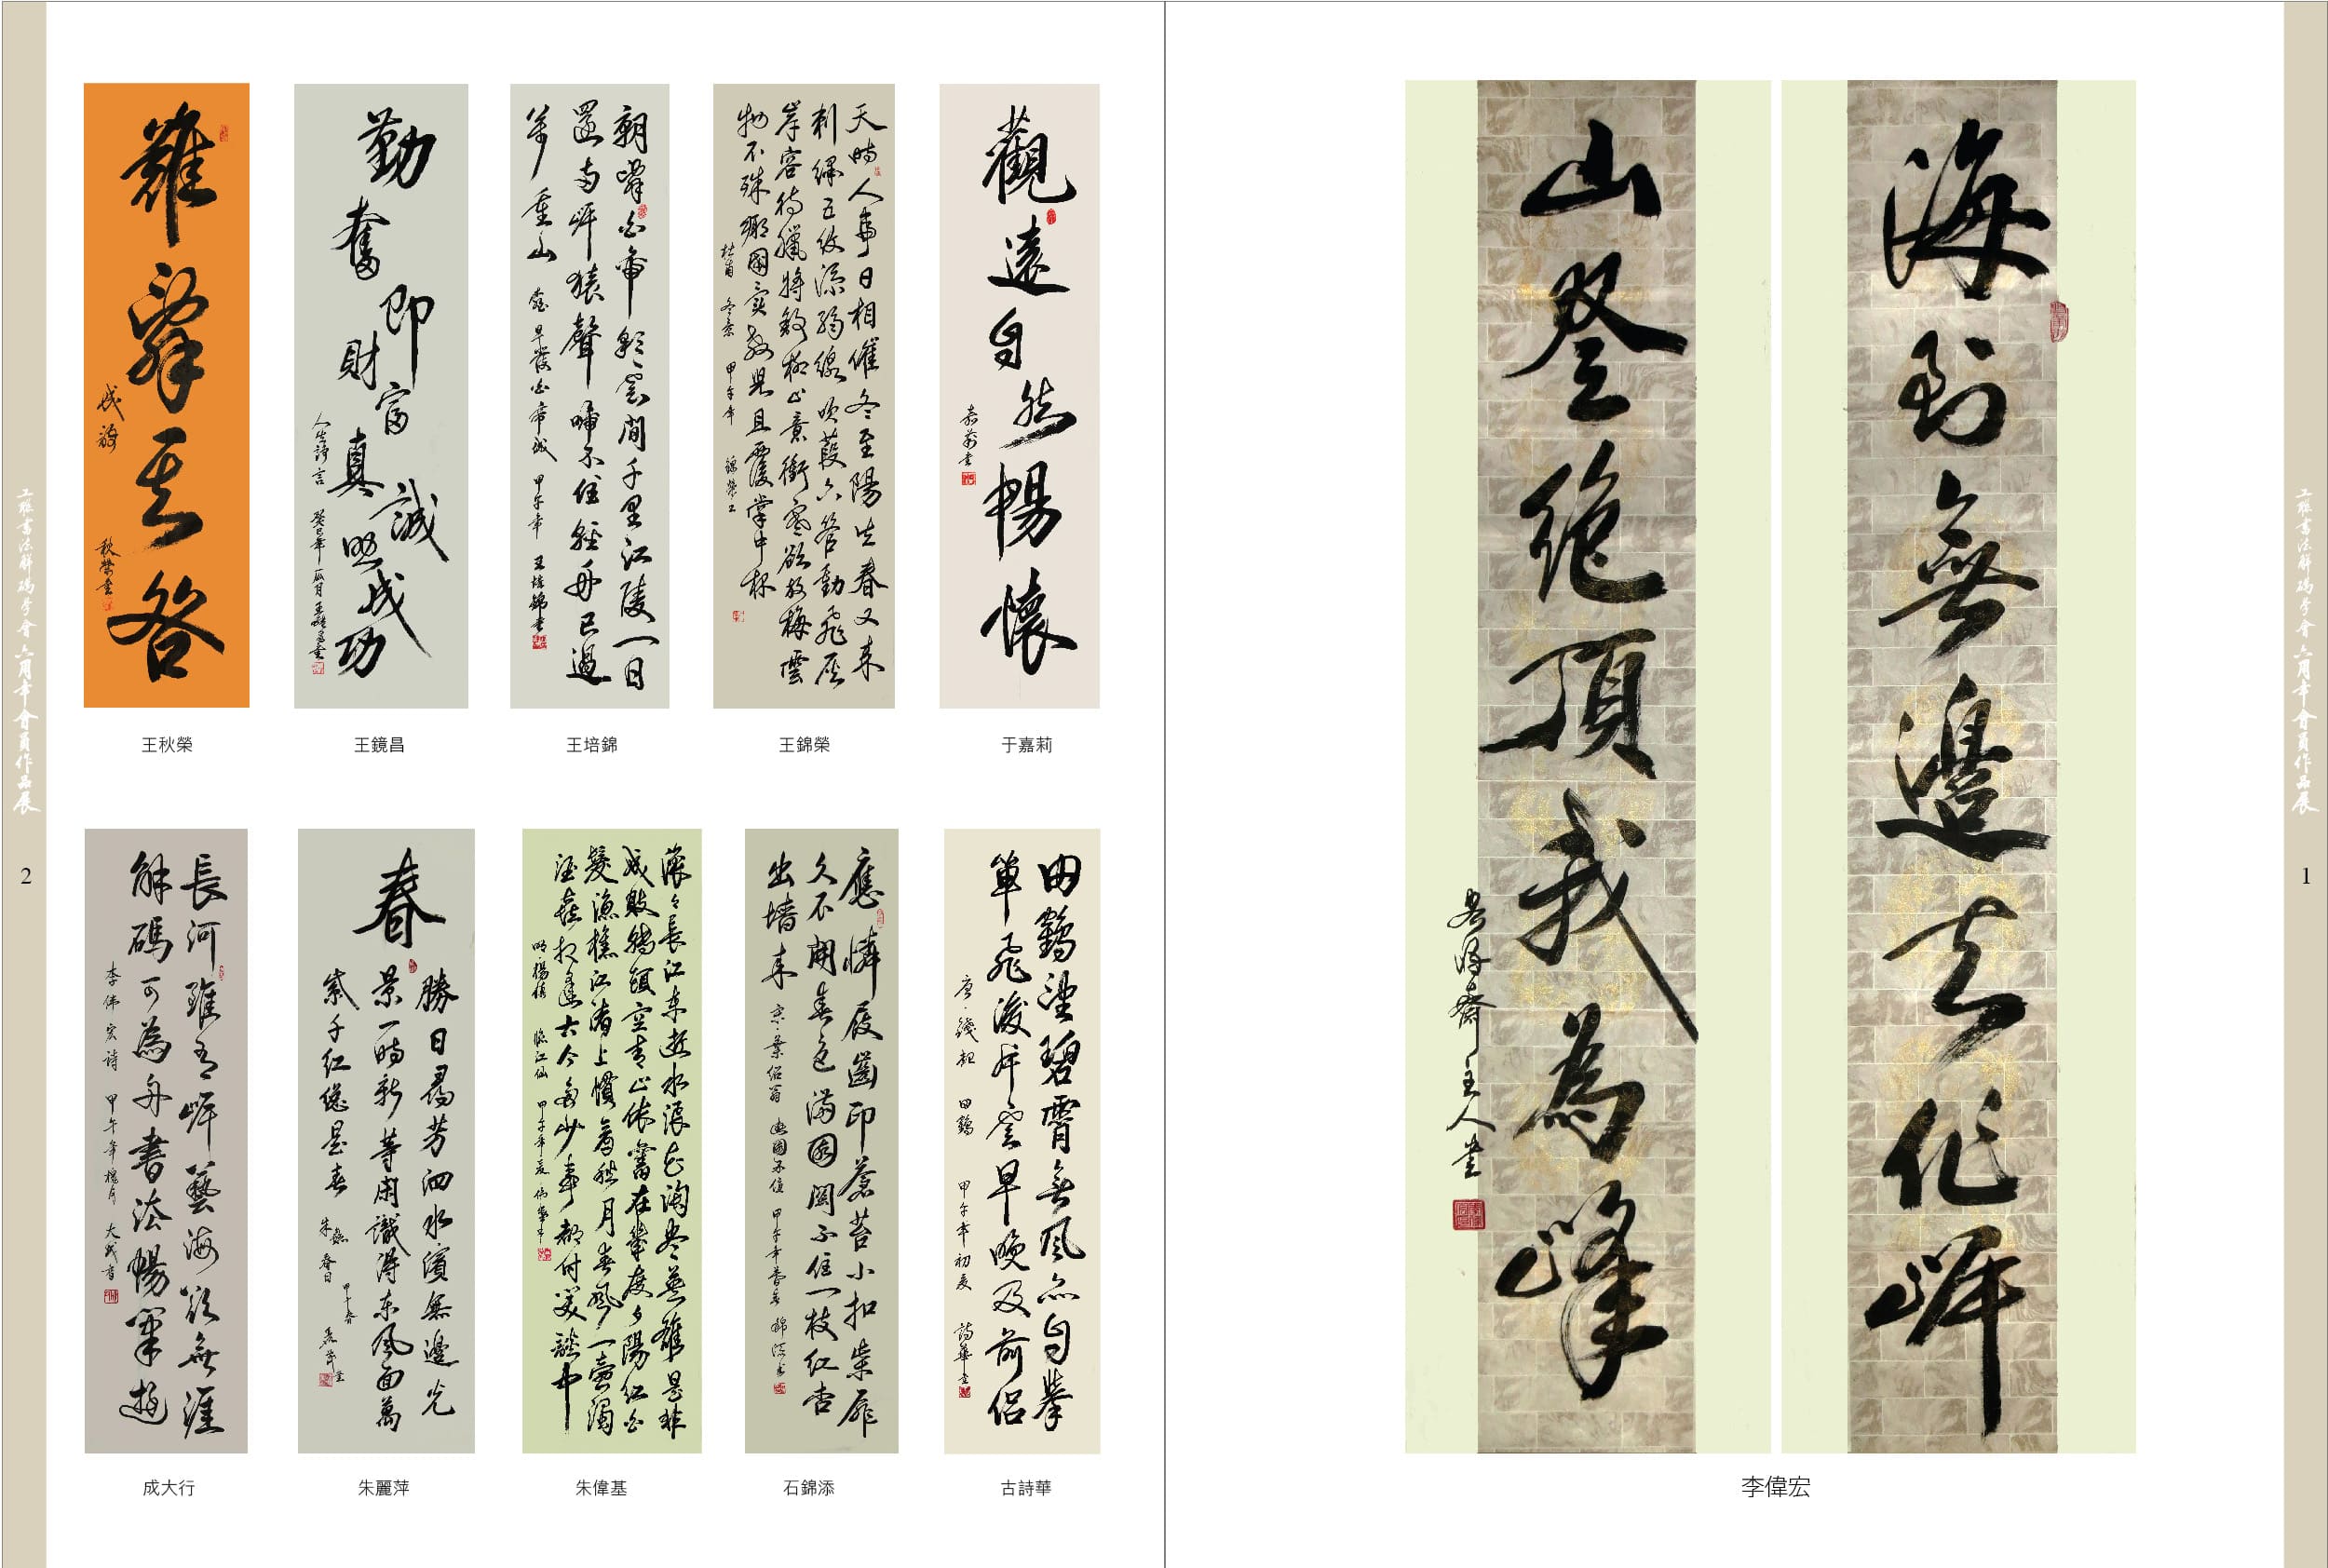 工聯書法解碼學會六周年會員作品展
1
海到無邊天作岸
山登絕頂我為峰
齋主人書
李偉宏
觀遠自然暢懷
嘉莉書
于嘉莉
天時人事日相催冬至陽生春又來
刺繡五紋添弱線吹葭六管動飛灰
岸容待臘將舒柳山意衝寒欲放梅雲
物不殊鄉國異教兒且覆掌中杯
杜甫 冬景 甲午年 錦榮書
王錦榮
朝辭白帝彩雲間千里江陵一日
還兩岸猿聲啼不住輕舟已過
萬重山 錄早發白帝城 甲午年 王培錦書
王培錦
勤奮即財富真誠照成功
人生諍言 癸巳年 王鏡昌書
王鏡昌
難辭其咎
成語
秋榮書
王秋榮
田鶴望碧霄無風亦自舉
單飛後片雲早晚及前侶
唐·錢起 田鶴 甲午年初夏 詩華書
古詩華
應憐屐齒印蒼苔小扣柴扉
久不開春色滿園關不住一枝紅杏
出墻來 宋·葉紹翁 遊園不值 甲午年暮春 錦添書
石錦添
滾滾長江東逝水浪花淘盡英雄是非
成敗轉頭空青山依舊在幾度夕陽紅白
髮漁樵江渚上慣看秋月春風一壺濁
酒喜相逢古今多少事都付笑談中
明·楊慎 臨江仙 甲午年夏 偉基書
朱偉基
春
勝日尋芳泗水濱無邊光
景一時新等閒識得東風面萬
紫千紅總是春
朱熹 春日 甲午春 麗萍書
朱麗萍
長河雖有岸藝海欲無涯
解碼可為舟書法暢筆遊
李偉宏詩 甲午年槐月 大成書
成大行
工聯書法解碼學會六周年會員作品展
2